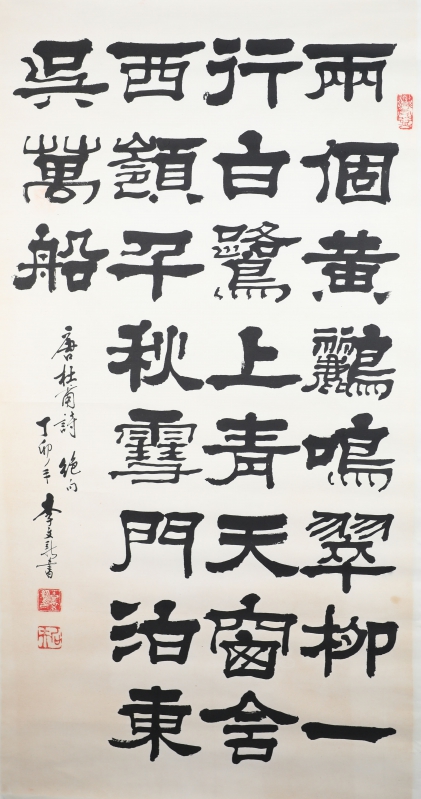 兩個黄鸝鳴翠柳一
行白鷺上青天窗含
西嶺千秋雪門泊東
吳萬船
唐杜甫詩 絕句
丁卯年 李文書